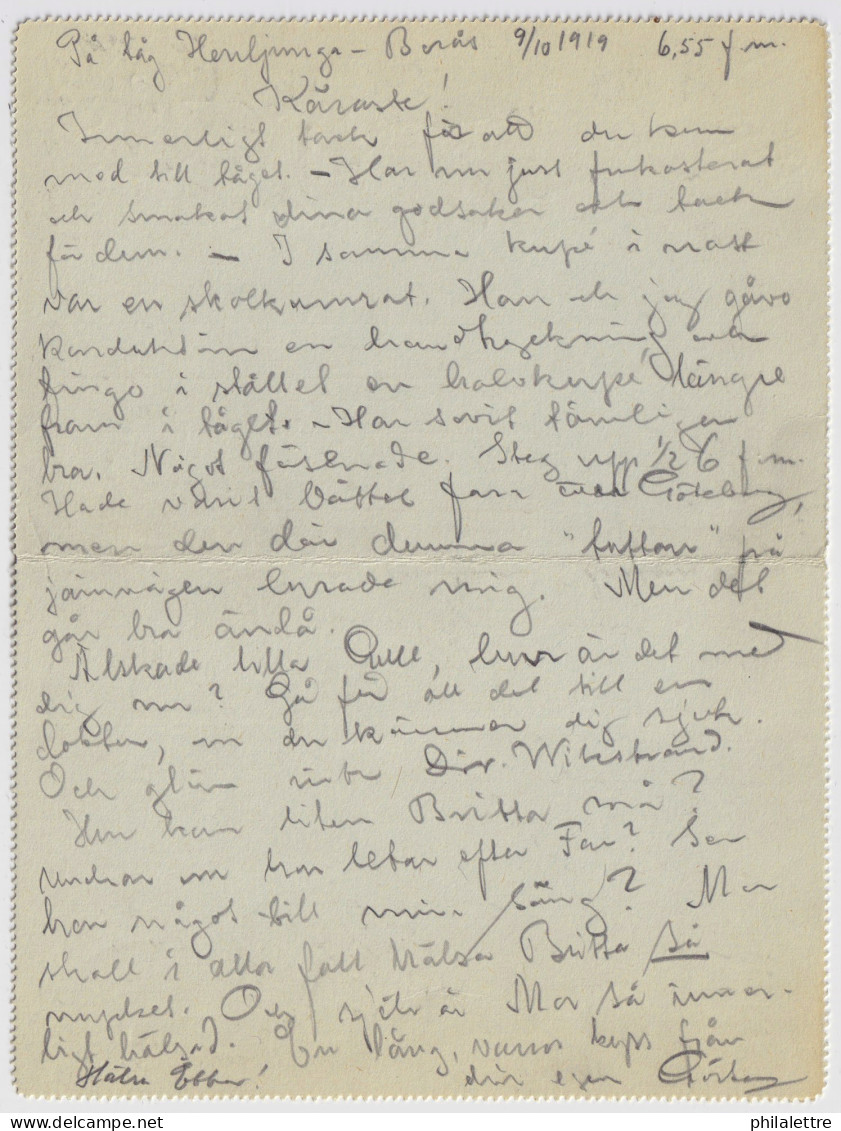 På tåg Herrljunga – Borås 9/10 1919 6,55 f.m.
Käraste!
Innerligt tack för att du kom
med till tåget. – Har nu just frukosterat
och smakat dina godsaker och tack
för dem. – I samma kupé i natt
var en skolkamrat. Han och jag gåvo
konduktören en handtryckning och
fingo i stället en halvkupé längre
fram i tåget. – Har sovit tämligen
bra. Något försenade. Steg upp ½ 6 f.m.
Hade varit bättre fara över Göteborg,
men den där dumma " " på
järnvägen lurade mig. Men det
går bra ändå.
Älskade lilla , hur är det med
dig nu? Gå för all del till en
doktor, om du känner dig sjuk.
Och glöm inte Dir. Wikstrand.
Hur kan liten Britta må?
Undrar om hon letar efter Far? Ser
hon något till min säng? Mor
skall i alla fall hälsa Britta så
mycket. Och själv är Mor så inner-
ligt hälsad. En lång, varm kyss från
Hälsa Ebba! din egen Gösta
philalettre